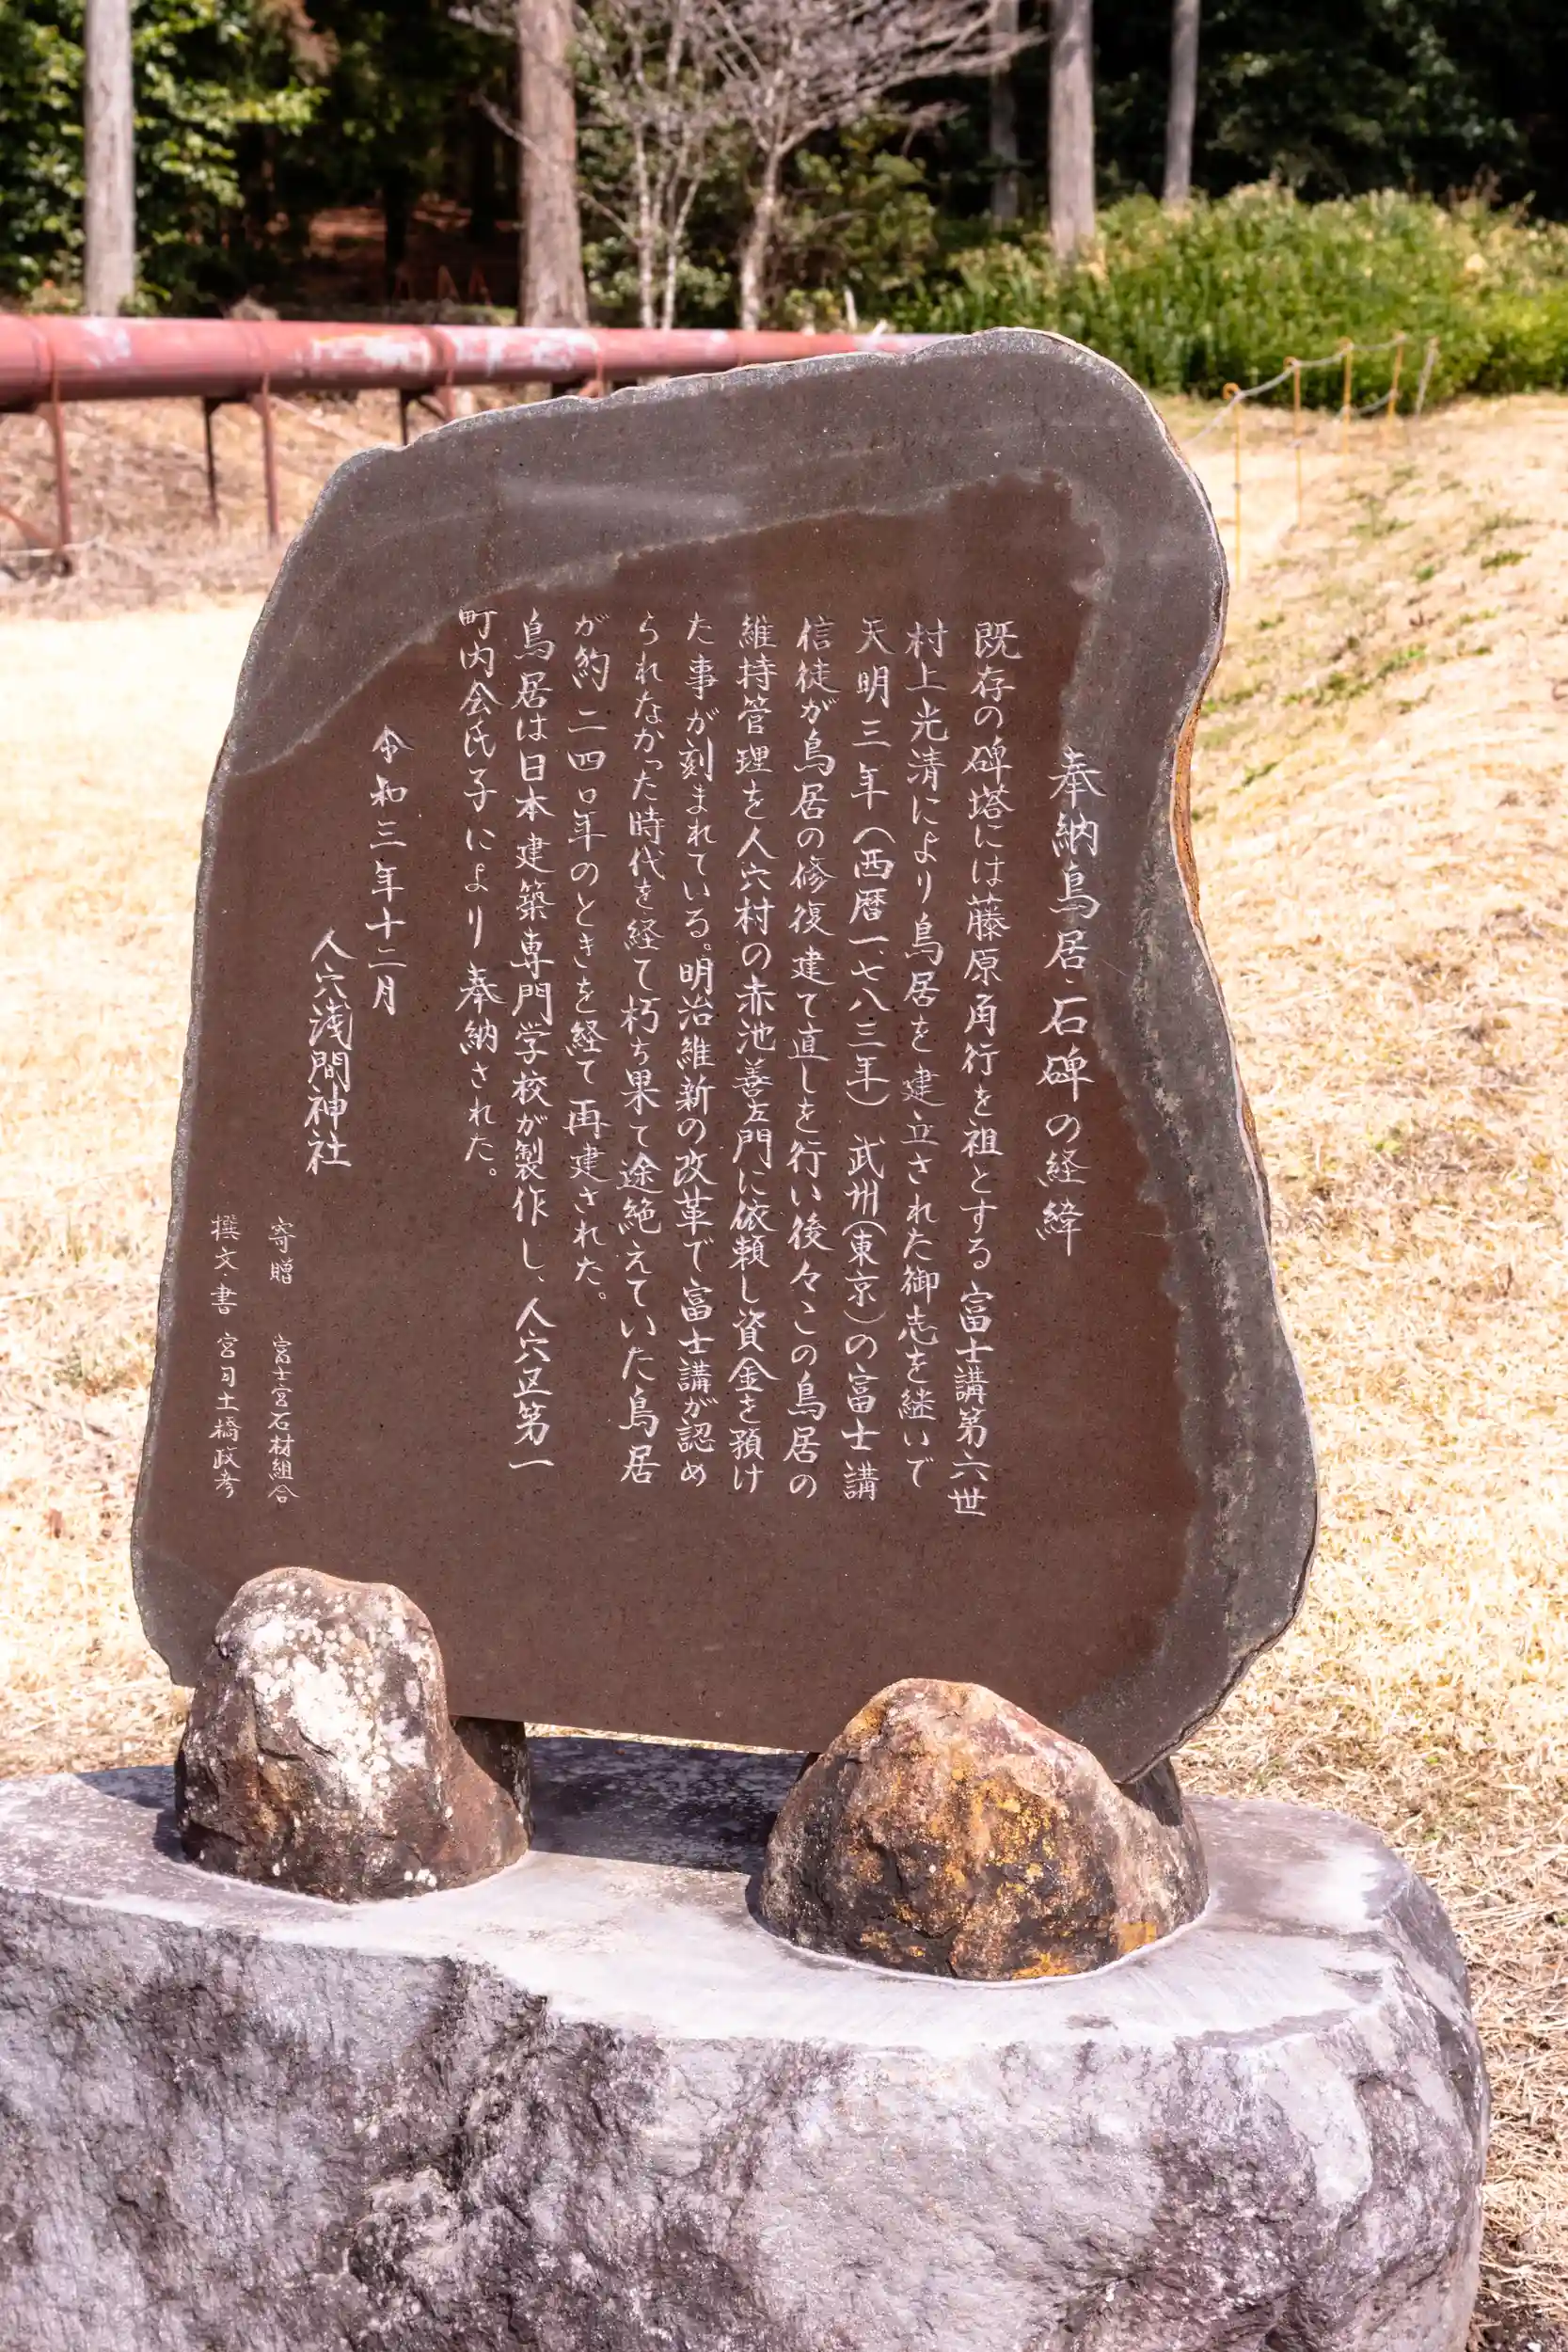 奉納鳥居・石碑の経緯
既存の碑塔には藤原角行を祖とする富士講第六世
村上光清により鳥居を建立された御志を継いで
天明三年(西暦一七八三年)武州(東京)の富士講
信徒が鳥居の修復建て直しを行い後々この鳥居の
維持管理を人穴村の赤池善左門に依頼し資金を預け
た事が刻まれている。明治維新の改革で富士講が認め
られなかった時代を経て朽ち果て途絶えていた鳥居
が約二四〇年のときを経て再建された。
鳥居は日本建築専門学校が製作し、人穴区第一
町内会氏子により奉納された。
令和三年十二月
人穴浅間神社
寄贈 富士宮石材組合
撰文・書 宮司土橋政彦